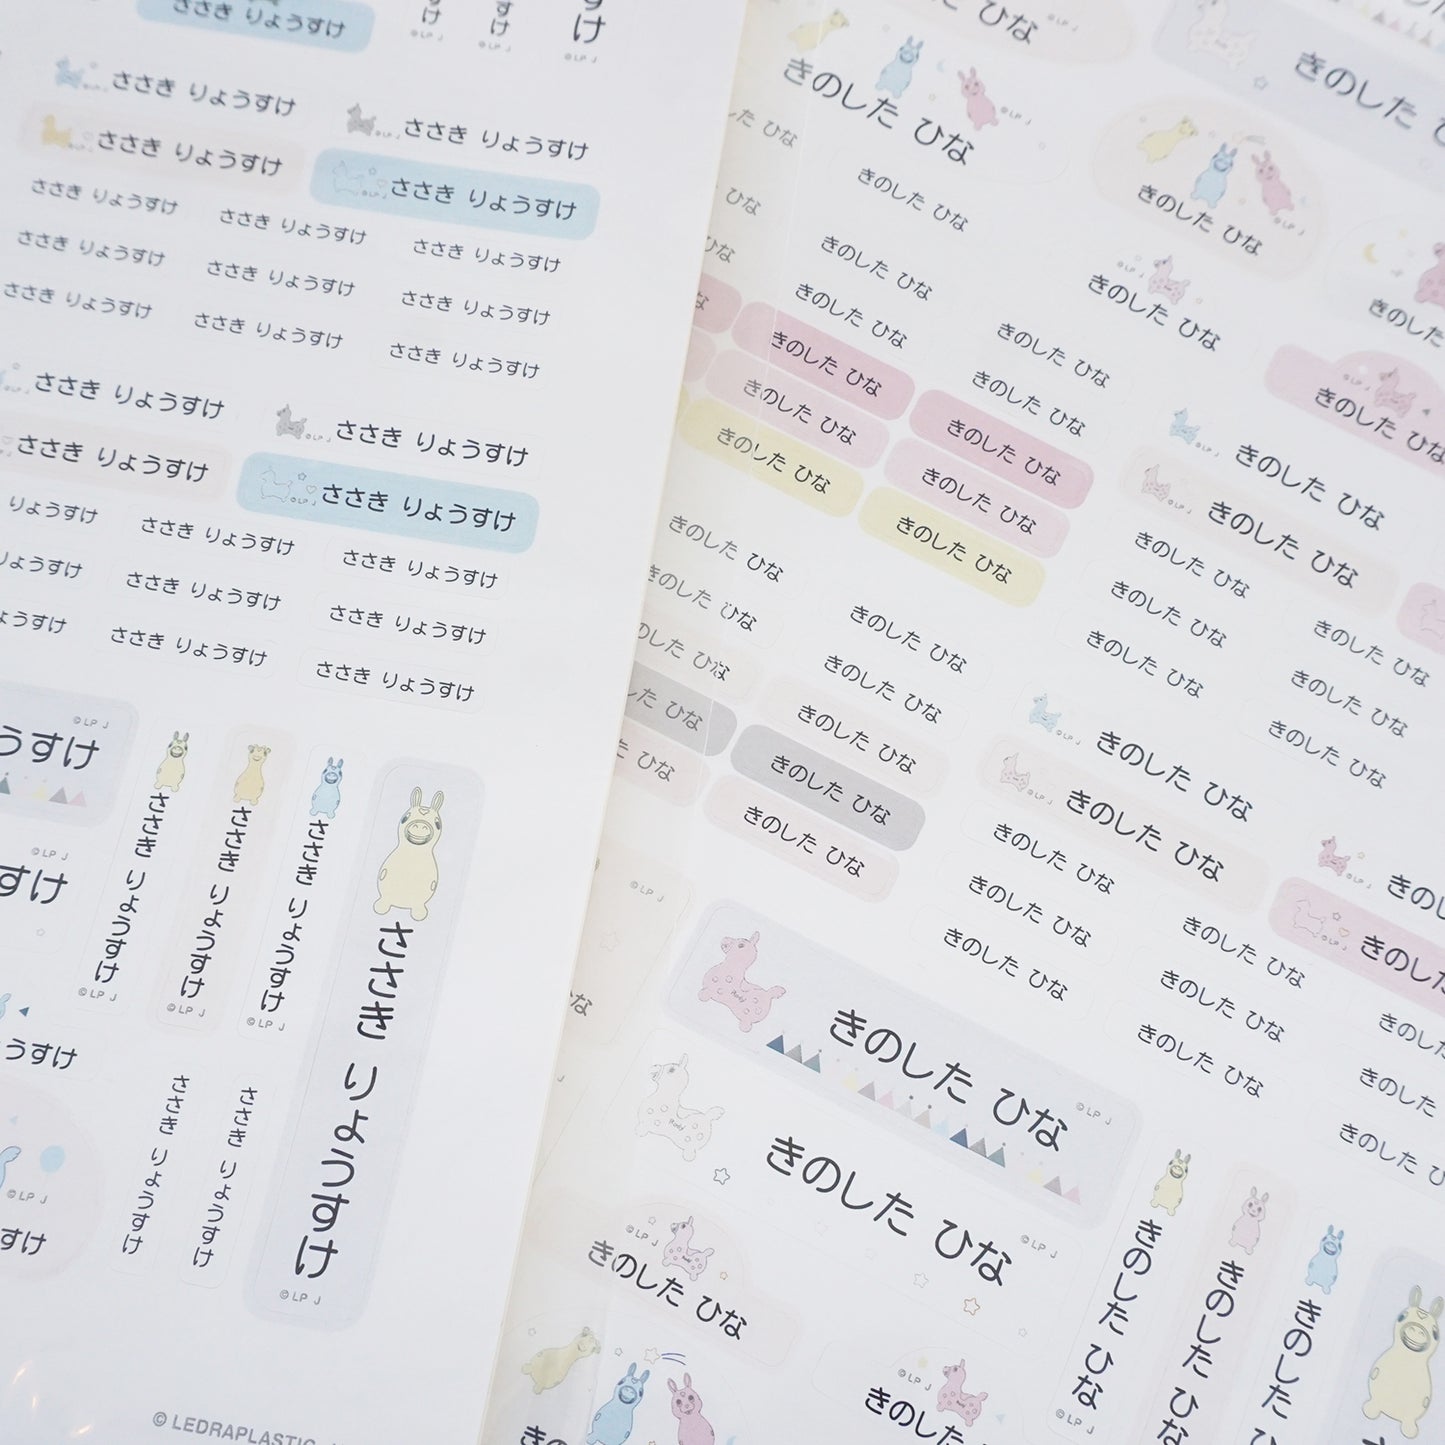 ささき りょうすけ
© LP J
© LP J
© LP J
ささき りょうすけ
ささき りょうすけ
ささき りょうすけ
ささき りょうすけ
ささき りょうすけ
ささき りょうすけ
ささき りょうすけ
ささき りょうすけ
ささき りょうすけ
ささき りょうすけ
ささき りょうすけ
ささき りょうすけ
ささき りょうすけ
ささき りょうすけ
ささき りょうすけ
ささき りょうすけ
ささき りょうすけ
りょうすけ
ささき りょうすけ
ささき りょうすけ
ささき りょうすけ
ささき りょうすけ
ささき りょうすけ
ささき りょうすけ
© LP J
うすけ
© LP J
すけ
ささき りょうすけ
© LP J
ささき りょうすけ
© LP J
ささき りょうすけ
© LP J
ささき りょうすけ
© LP J
ょうすけ
ささき りょうすけ
ささき りょうすけ
© LP J
すけ
© LEDRAPLASTIC
ひな
© LP J
きのした
きのした ひな
© LP J
きのした ひな
© LP J
きのした ひな
きのした ひな
きのした ひな
© LP J
きのした ひな
きのした
きのした ひな
きのした ひな
© LP J
きのした ひな
きのした ひな
きのした ひな
きのした ひな
きのした ひな
きのした ひな
きのした ひな
きのした ひな
きのした ひな
きのした ひな
きのした ひな
きのした ひな
きのした ひな
きのした ひな
きのした ひな
きのした ひな
きのした ひな
きのした ひな
きのした ひな
きのした ひな
きのした ひな
きのした ひな
きのした ひな
きのした ひな
きのした ひな
きのした ひな
きのした ひな
きのした ひな
きのした ひな
きのした ひな
きのした ひな
きのした ひな
きのした ひな
きのした ひな
© LP J
きのした ひな
© LP J
きのした ひな
© LP J
きのした ひな
© LP J
きのした
きのした ひな
© LP J
きのした ひな
きのした ひ